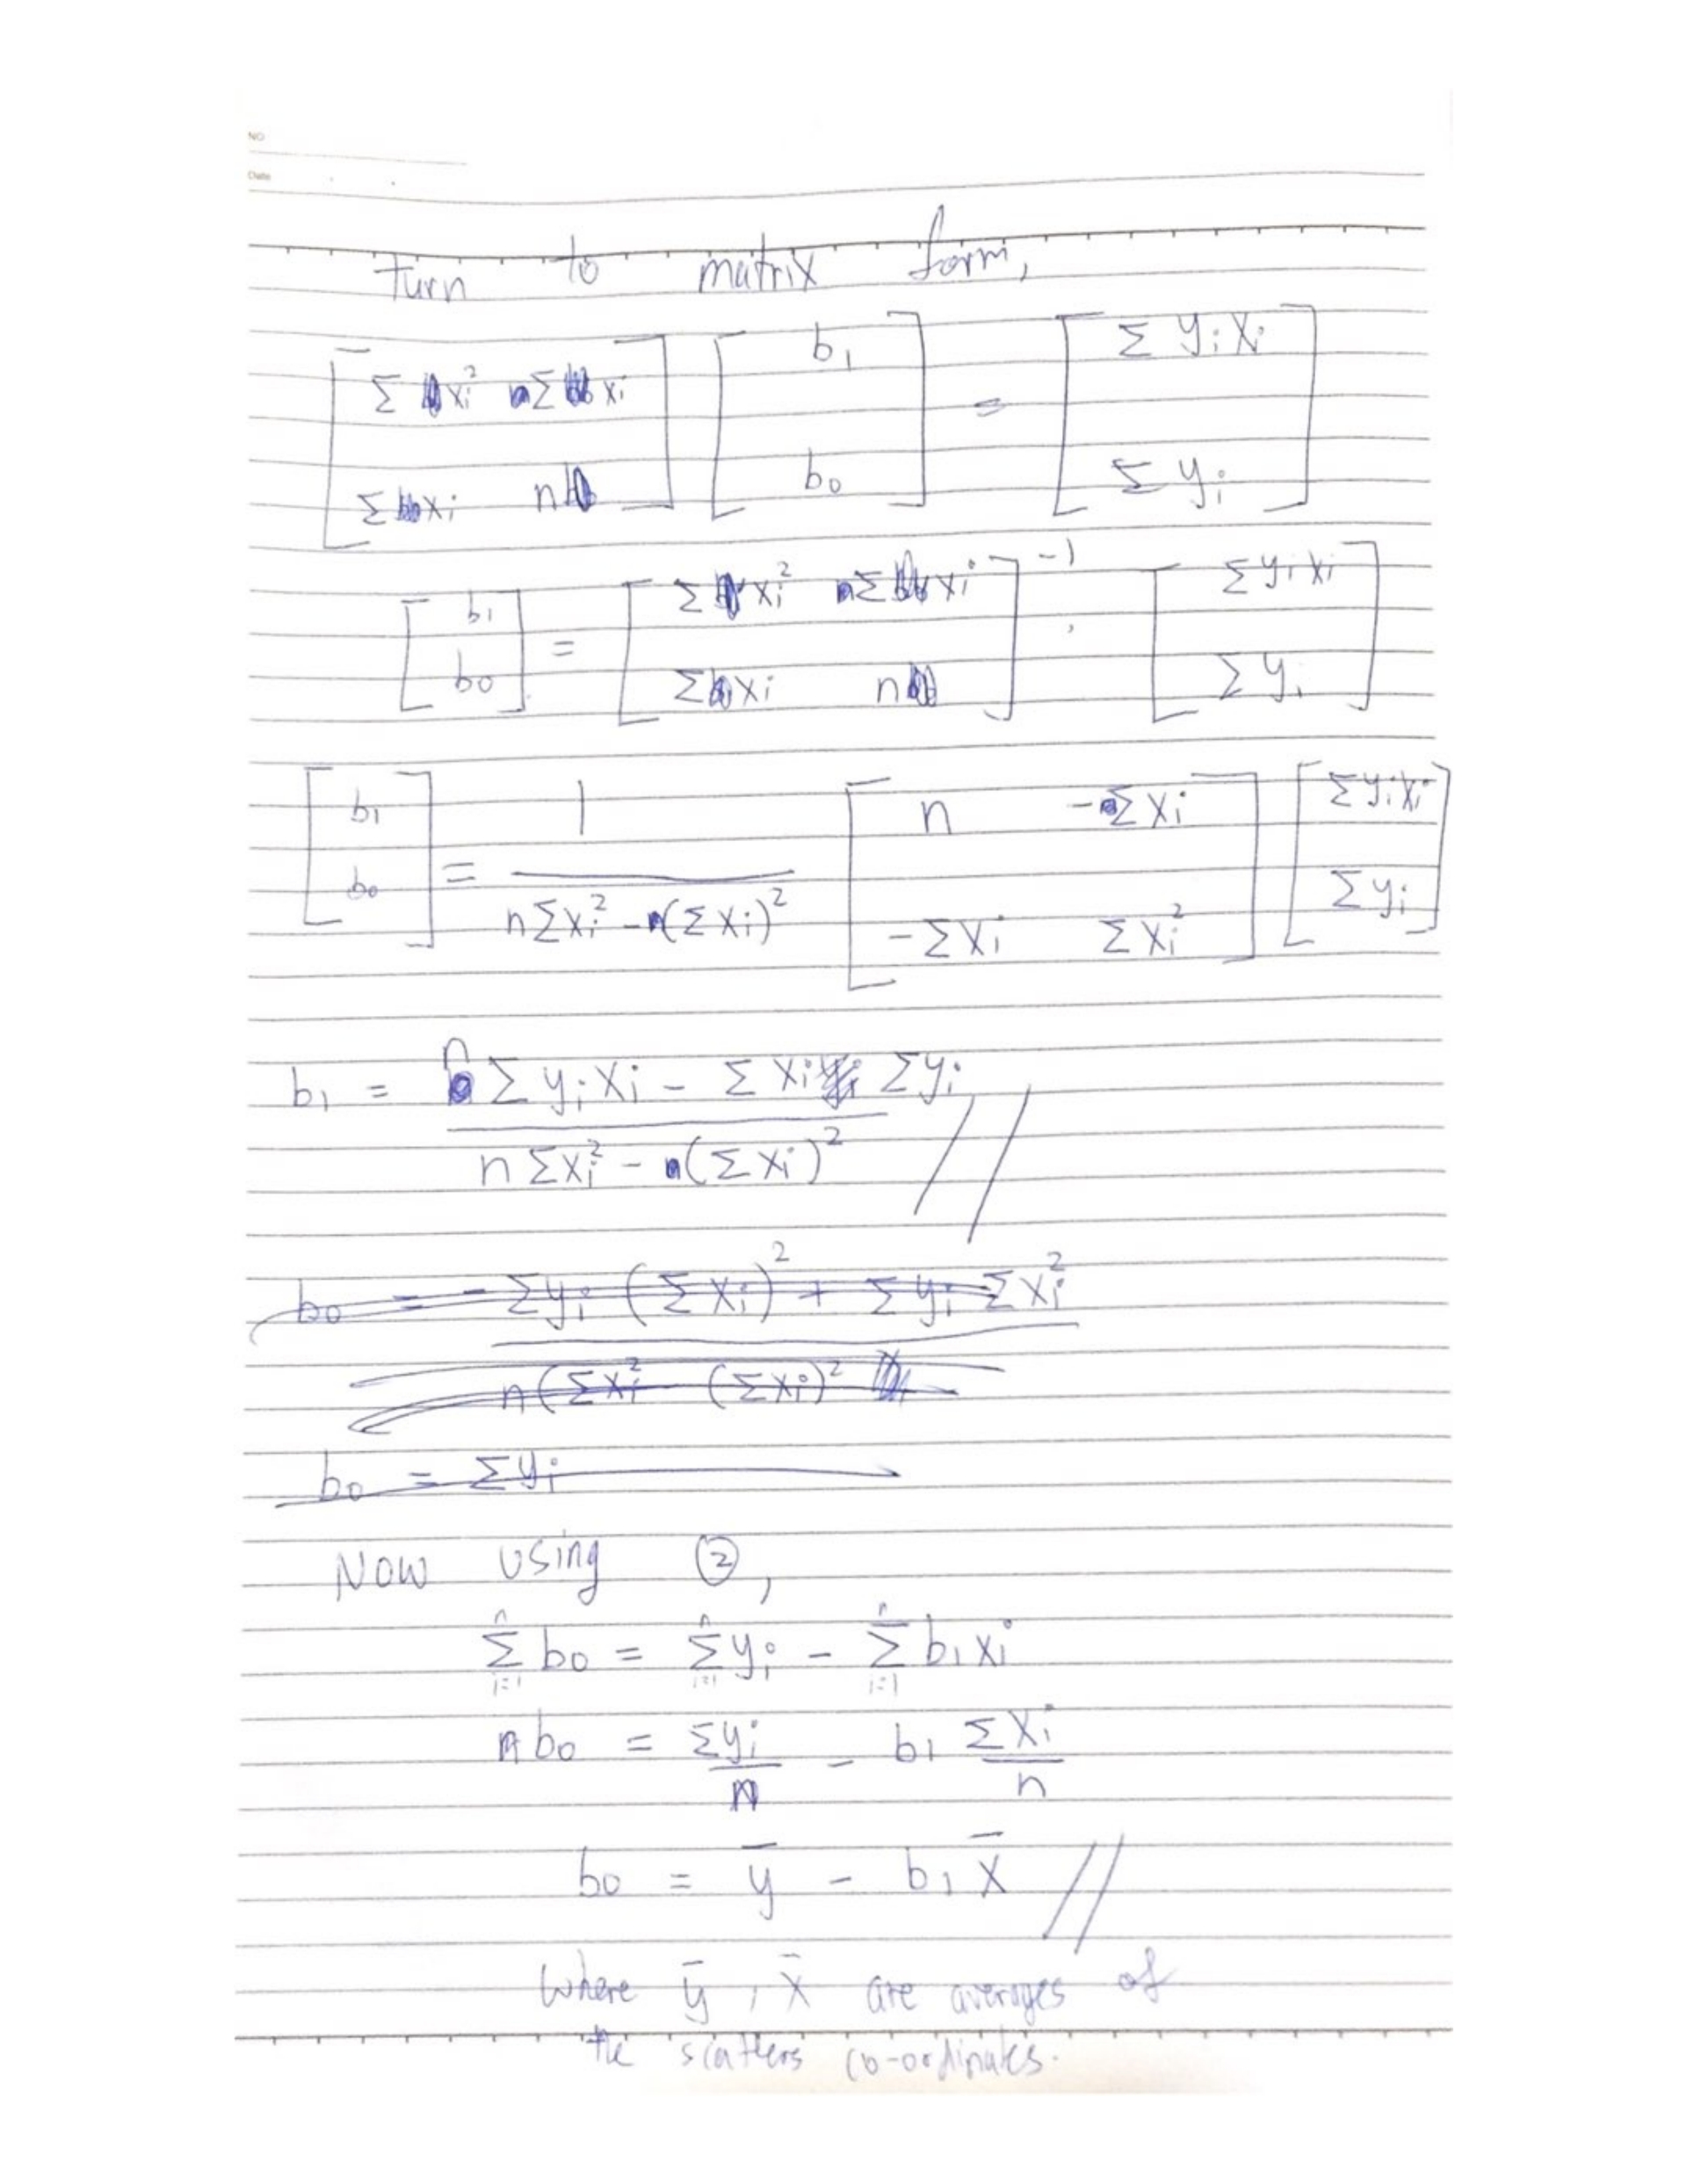 NO
Date
Turn to matrix form,
[ Σ xi² Σ xi ; Σ xi n ] [ b1 ; b0 ] = [ Σ yi xi ; Σ yi ]
[ b1 ; b0 ] = [ Σ xi² Σ xi ; Σ xi n ]⁻¹ · [ Σ yi xi ; Σ yi ]
[ b1 ; b0 ] = 1 / (n Σ xi² - (Σ xi)²) [ n -Σ xi ; -Σ xi Σ xi² ] [ Σ yi xi ; Σ yi ]
b1 = (n Σ yi xi - Σ xi Σ yi) / (n Σ xi² - (Σ xi)²) //
b0 = (- Σ yi (Σ xi)² + Σ yi Σ xi²) / (n(Σ xi² (Σ xi)²
b0 = Σ yi
Now using ②,
Σ(i=1 to n) b0 = Σ(i=1 to n) yi - Σ(i=1 to n) b1 xi
n b0 = Σ yi / n - b1 Σ xi / n
b0 = ȳ - b1 x̄ //
where ȳ, x̄ are averages of
the scatters co-ordinates.